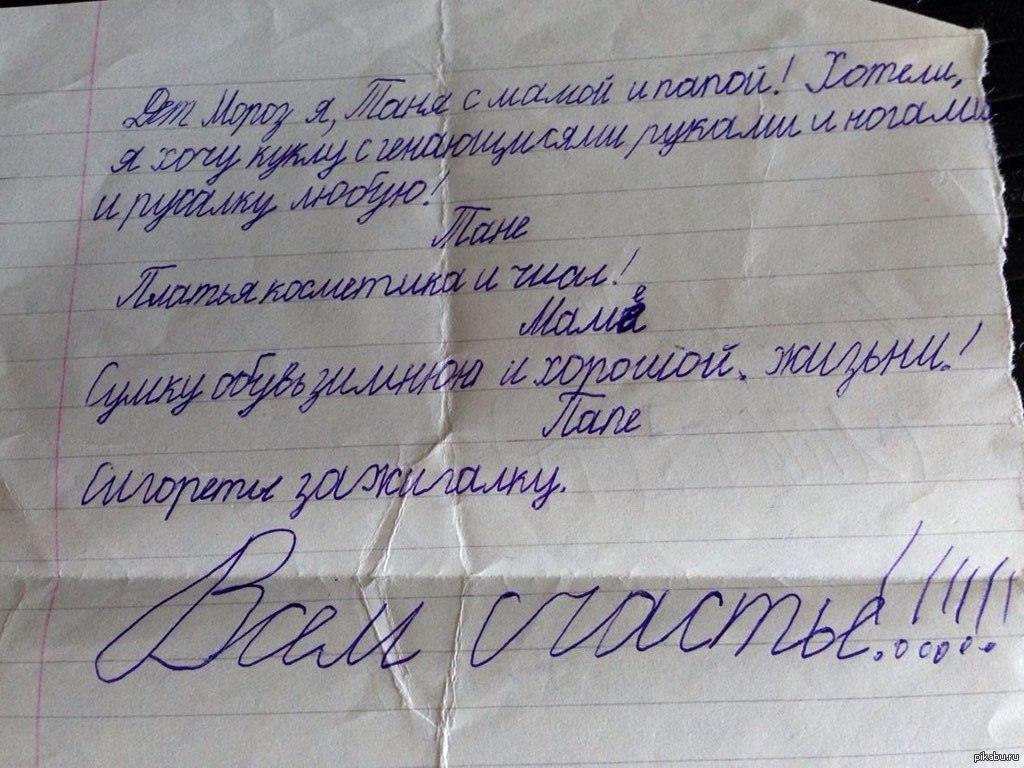 Дет Мороз я, Таня с мамой и папой! Хотели,
я хочу куклу с генающимисями руками и ногами
и русалку любую!
Тане
Платья косметика и чисы!
Маме
Сумку обувь зимнюю и хорошой. жизьни!
Папе
Сигореты зажигалку.
Всем счастье!!!!!!
pikabu.ru